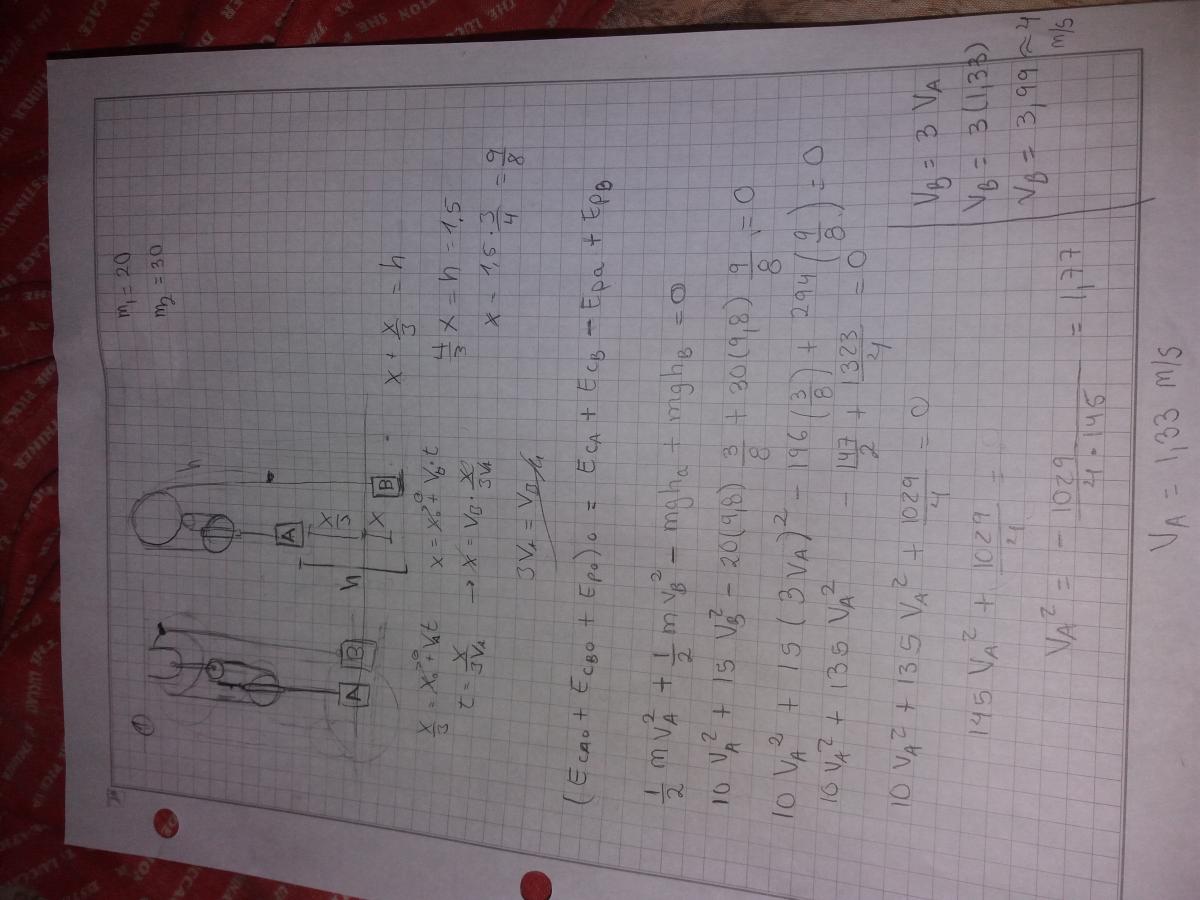 ①
m₁ = 20
m₂ = 30
A
B
A
B
h
h
x/3
x
x/3 = x₀ + Vₐt
t = x/3Vₐ
x = x₀ + V_B·t
→ x = V_B · x/3Vₐ
3Vₐ = V_B
x + x/3 = h
4/3 x = h = 1,5
x = 1,5 · 3/4 = 9/8
(E_CA0 + E_CB0 + E_P0)0 = E_CA + E_CB - E_PA + E_PB
1/2 m V_A² + 1/2 m V_B² - mgh_a + mgh_B = 0
10 V_A² + 15 V_B² - 20(9,8) 3/8 + 30(9,8) 9/8 = 0
10 V_A² + 15 (3 V_A)² - 196 (3/8) + 294 (9/8) = 0
10 V_A² + 135 V_A² - 147/2 + 1323/4 = 0
10 V_A² + 135 V_A² + 1029/4 = 0
145 V_A² + 1029/4 =
V_A² = - 1029/4·145 = 1,77
V_A = 1,33 m/s
V_B = 3 V_A
V_B = 3 (1,33)
V_B = 3,99 ≈ 4 m/s